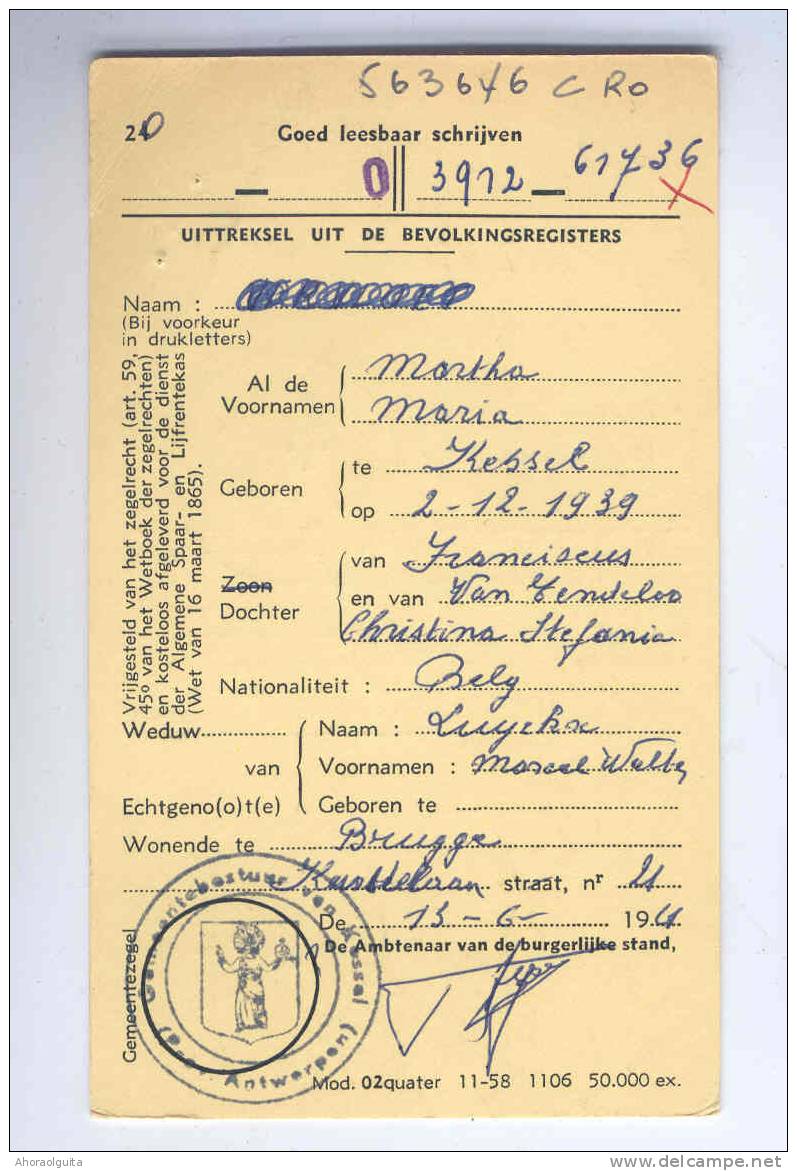 563646 C RO
240
Goed leesbaar schrijven
— 0 || 3912 — 61736
UITTREKSEL UIT DE BEVOLKINGSREGISTERS
Naam :
(Bij voorkeur
in drukletters)
Vrijgesteld van het zegelrecht (art. 59,
45º van het Wetboek der zegelrechten)
en kosteloos afgeleverd voor de dienst
der Algemene Spaar- en Lijfrentekas
(Wet van 16 maart 1865).
Al de
Voornamen
Martha
Maria
Geboren
te Kessel
op 2-12-1939
Zoon
Dochter
van Franciscus
en van Van Tendeloo
Christina Stefania
Nationaliteit : Belg
Weduw
van
Echtgeno(o)t(e)
Naam : Luyckx
Voornamen : Marcel
Geboren te
Wonende te Brugge
straat, nr 21
De 13-6- 1961
De Ambtenaar van de burgerlijke stand,
Gemeentezegel
Gemeentebestuur van Kessel
(Prov. Antwerpen)
Mod. 02quater 11-58 1106 50.000 ex.
Ahoraolguita
www.delcampe.net